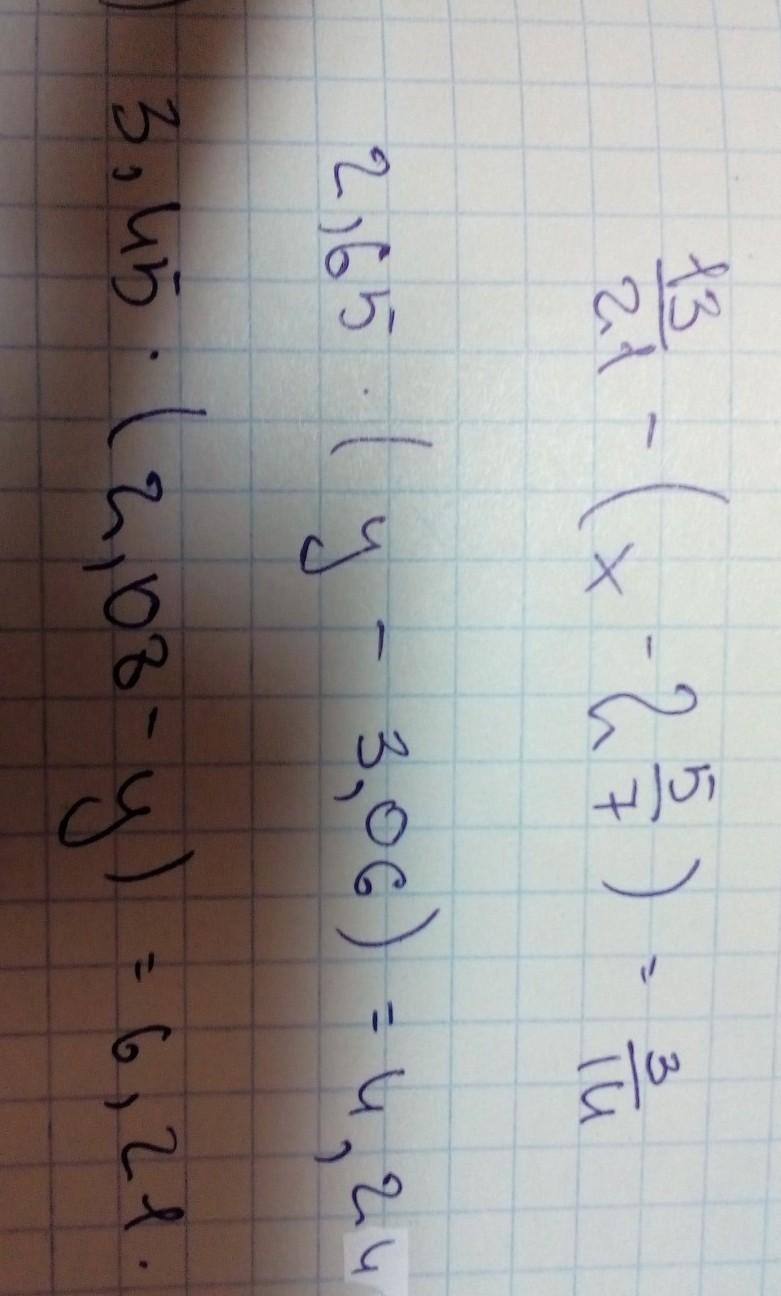 13/21 - (x - 2 5/7) = 3/14
2,65 · (y - 3,06) = 4,24
) 3,45 · (2,08 - y) = 6,21.